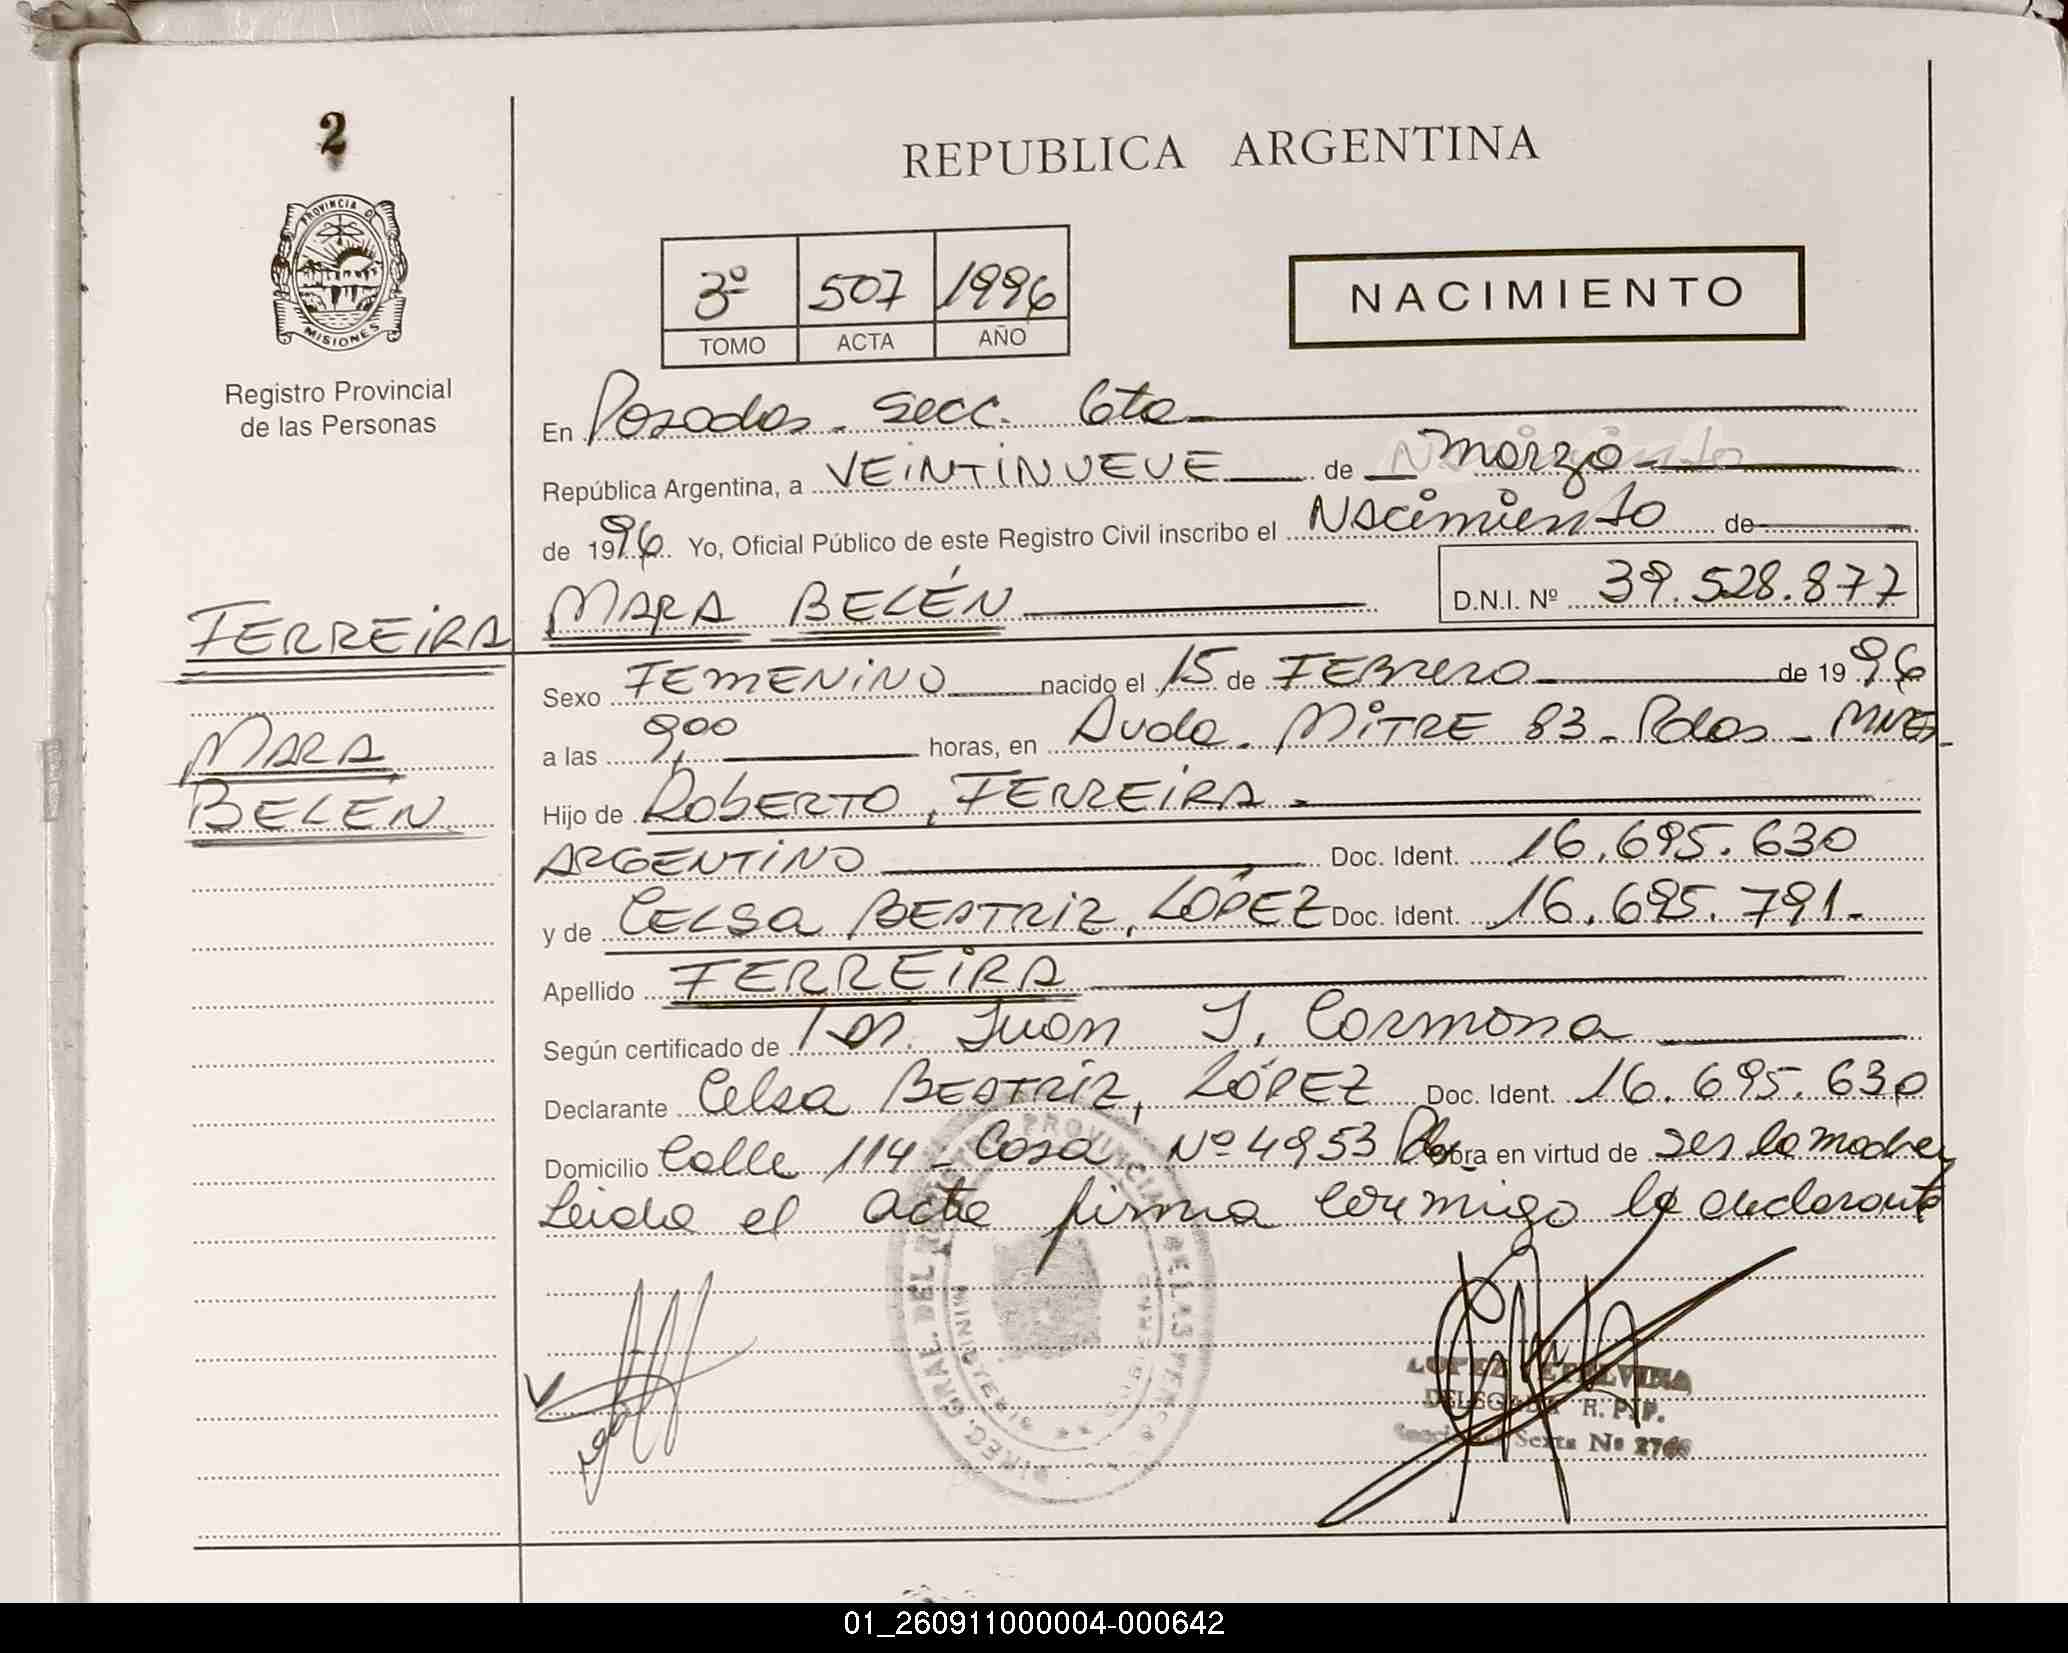 2
PROVINCIA D
MISIONES
Registro Provincial
de las Personas
REPUBLICA ARGENTINA
3º 507 1996
TOMO ACTA AÑO
NACIMIENTO
En Posadas - Secc. 6ta
República Argentina, a VEINTINUEVE de Marzo
de 1996 Yo, Oficial Público de este Registro Civil inscribo el Nacimiento de
FERREIRA MARA BELÉN D.N.I. Nº 39.528.877
Sexo FEMENINO nacido el 15 de FEBRERO de 1996
MARA
a las 9,00 horas, en Avda. MITRE 83 - Pdas - MNES
BELEN
Hijo de ROBERTO, FERREIRA -
ARGENTINO Doc. Ident. 16.695.630
y de CELSA BEATRIZ, LÓPEZ Doc. Ident. 16.695.791.-
Apellido FERREIRA
Según certificado de Dr. Juan J. Carmona
Declarante Celsa BEATRIZ, LÓPEZ Doc. Ident. 16.695.630
Domicilio Calle 114 - Casa Nº 4953 Obra en virtud de ser la madre
Leida el acta firma conmigo la declarante
DIREC. GRAL. DEL REGISTRO PROVINCIAL DE LAS PERSONAS
MINISTERIO GOBIERNO
LOPEZ ETELVINA
DELEGADA R.P.P.
Seccional Sexta Nº
01_260911000004-000642